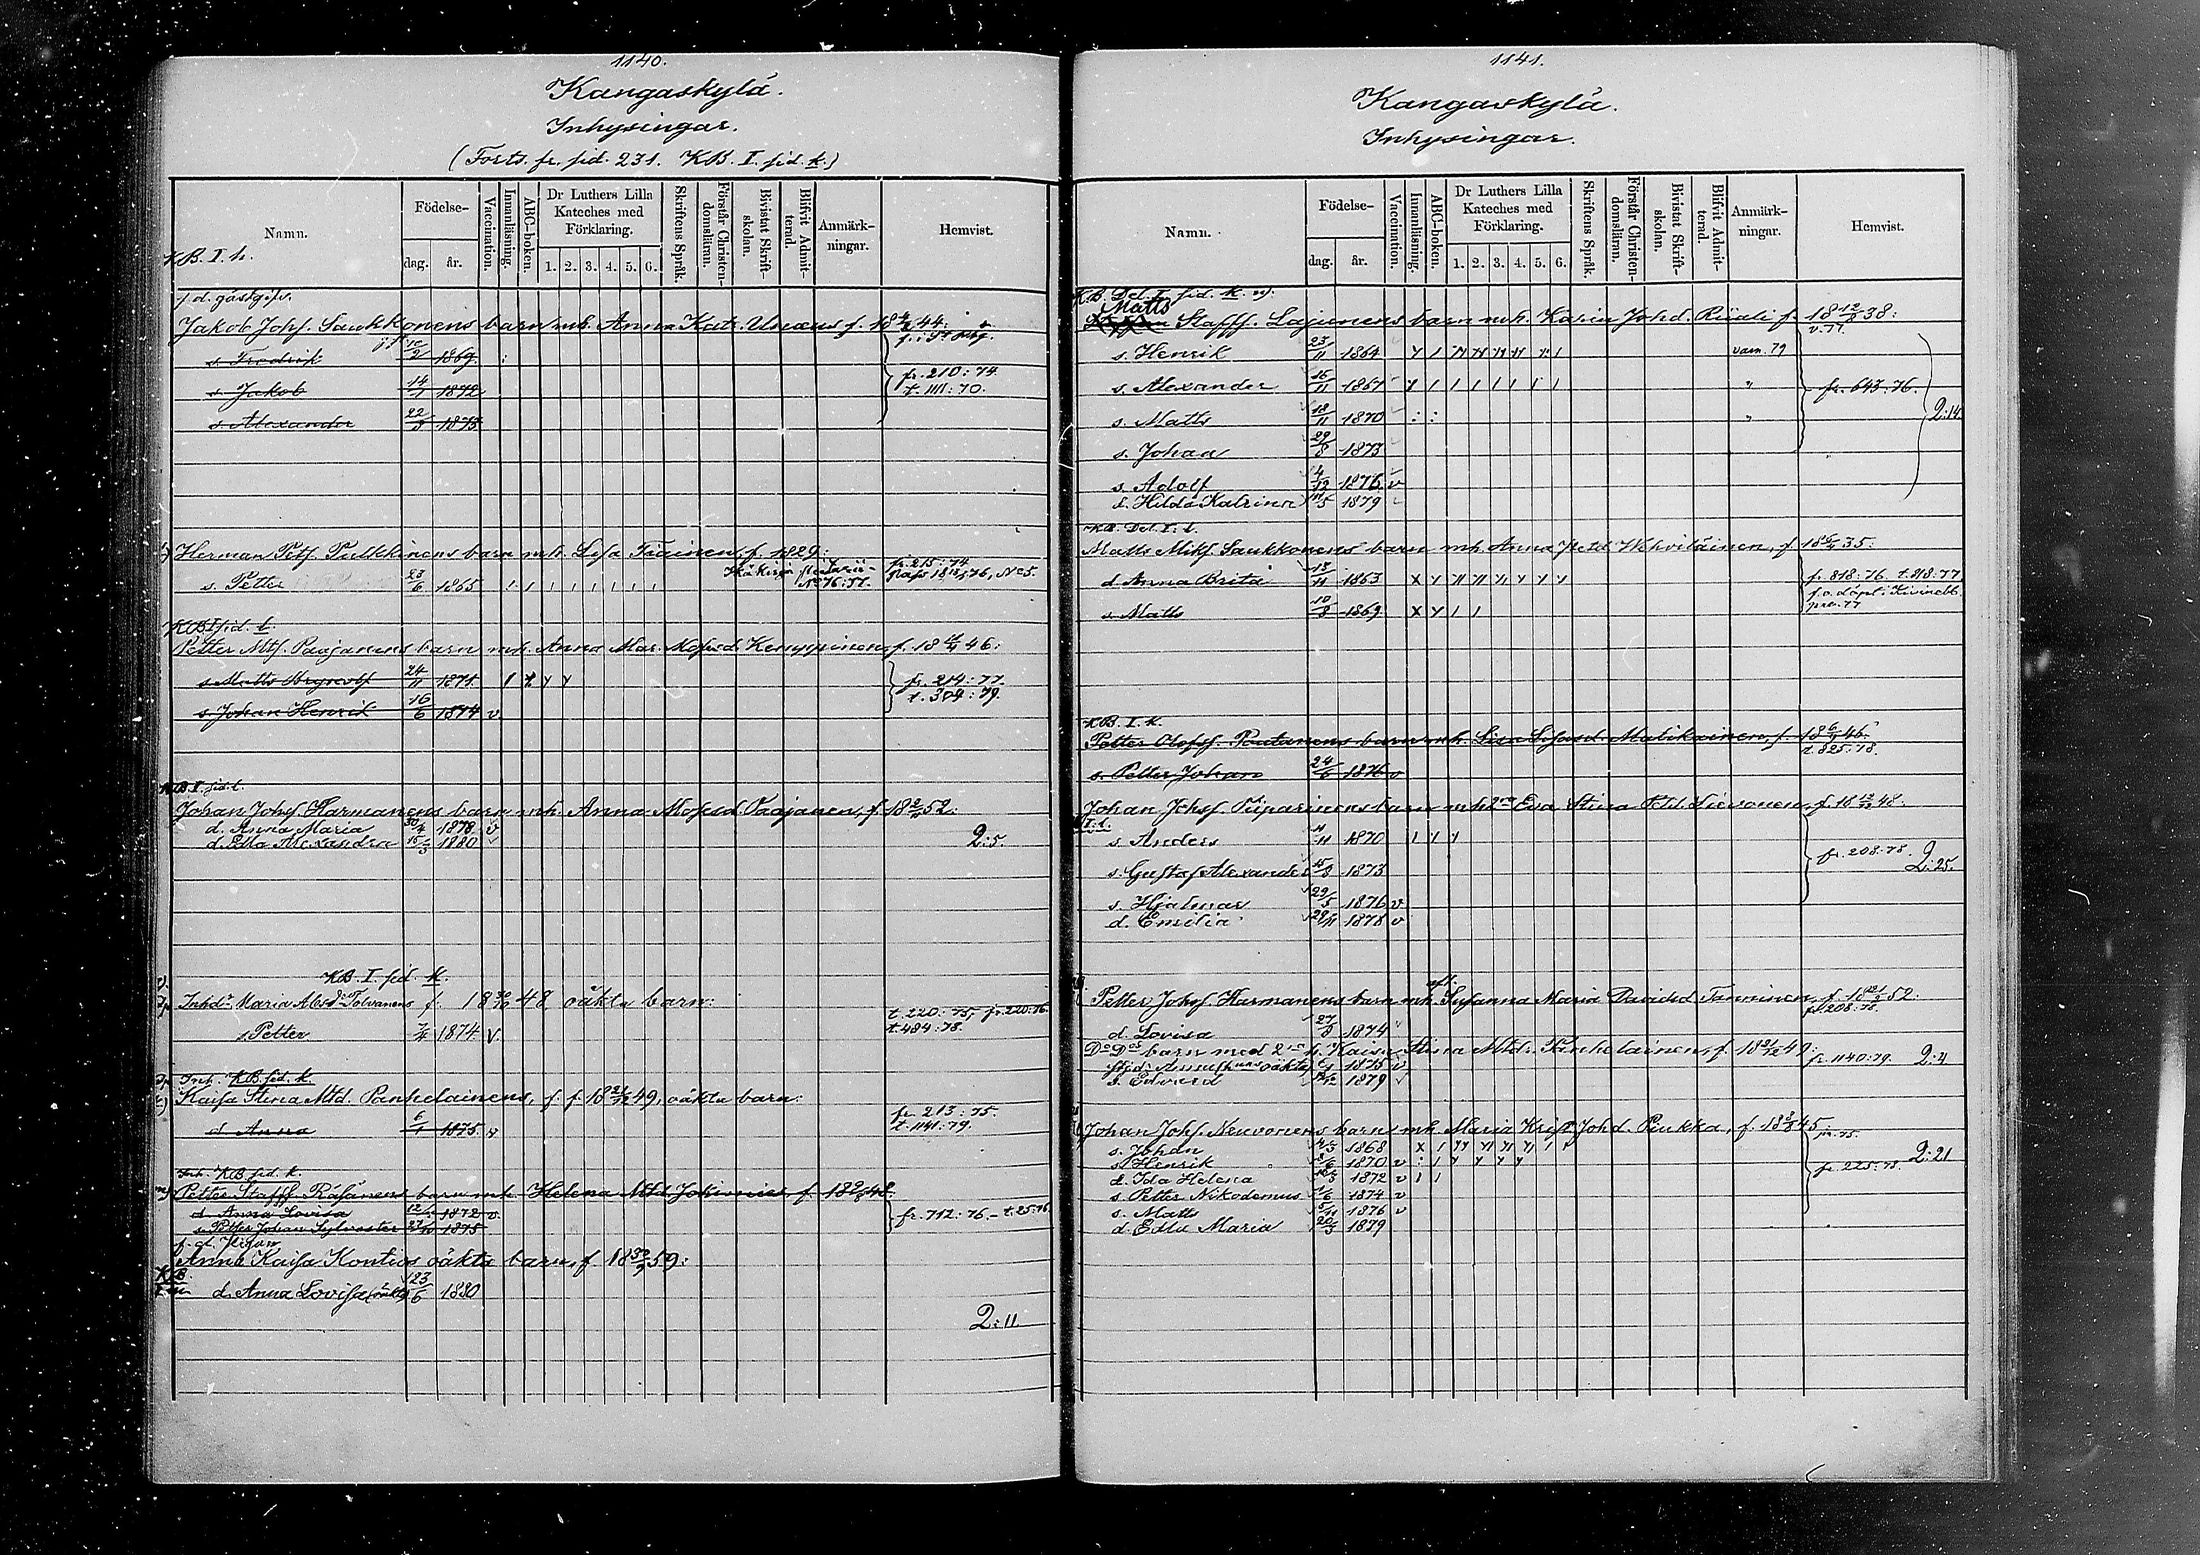 1140.
Kangaskylä.
Inhysingar.
(Forts. fr. sid. 231. KB. I. sid. k.)
Namn.
Födelse-
dag.
år.
Vaccination.
Innanläsning.
ABC-boken.
Dr Luthers Lilla
Kateches med
Förklaring.
1. 2. 3. 4. 5. 6.
Skriftens Språk.
Förstår Christen-
domsläran.
Bivistat Skrift-
skolan.
Blifvit Admit-
terad.
Anmärk-
ningar.
Hemvist.
K.B. I. h.
f d. gästgifv.
Jakob Johs. Saukkonens barn mh. Anna Katr. Unæus f. 44:
s. Fredrik 1869
s. Jakob 14 1872
fr. 210: 74.
t. 1111: 70.
s. Alexander 22 1875
Herman Petf. Pulkkinens barn mh. Lisa Tiainen, f. 1829:
fr. 215: 74
s. Petter 23/6 1865
No 76: 57.
KB I sid. l.
Petter Mtf. Paajanens barn mh. Anna Mar. Mosesd. Kemppinen f. 46:
s. Matts 24/11 1871
fr. 214: 77.
t. 304: 79.
s. Johan Henrik 16/6 1874 v
KB I. sid. l.
Johan Johs. Harmanens barn mh. Anna Mosesd. Paajanen, f. 52:
d. Anna Maria 30/4 1878 v
d. Edla Alexandra 1880 v
2: 5.
KB. I. sid. k.
Inhda Maria Absd. Tolvanens f. 18 48 oäkta barn:
t. 220: 75. fr. 220: 76.
s. Petter 1874 v.
t. 484: 78.
Inh. KB. sid. k.
Kaisa Stina Mtd. Panhelainens, f. 18 49, oäkta barn:
fr. 213: 75.
d. Anna 6/1 1875 v
t. 1141: 79.
Inh. KB. sid. k.
Petter Staff. Räsänens barn mh. Helena Mtd. f. 18 48.
d. Anna Lovisa 12 1872 v
fr. 712: 76. - t. 25: 76
s. Petter Johan Sylvester 1875
f. d. Pigan
Anna Kaisa Kontios oäkta barn, f. 18 59:
KB
d. Anna Lovisa (oäkta) 23/6 1880
2: 11.
1141.
Kangaskylä.
Inhysingar.
Namn.
Födelse-
dag.
år.
Vaccination.
Innanläsning.
ABC-boken.
Dr Luthers Lilla
Kateches med
Förklaring.
1. 2. 3. 4. 5. 6.
Skriftens Språk.
Förstår Christen-
domsläran.
Bivistat Skrift-
skolan.
Blifvit Admit-
terad.
Anmärk-
ningar.
Hemvist.
KB. Del. I. sid. k.
Matts
Staff. Lajunens barn mh. Karin Johd. Riiali f. 18 12/8 38:
v. 77.
s. Henrik 23/11 1864
vacn. 79
s. Alexander 16/11 1867 "
fr. 643: 76.
s. Matts 18/11 1870 "
2: 14
s. Johan 29/8 1873
s. Adolf 4/12 1876 v
d. Hilda Katrina 5 1879
KB. Del. I: l.
Matts Mikf. Saukkonens barn mh. Anna Petd. Wehviläinen, f 18 35:
d. Anna Brita 18/11 1863
fr. 818: 76. t. 818: 77
s. Matts 10/8 1869
KB. I. k.
Petter Olofsf. Poutanens barn mh. Lisa Matikainen, f. 18 46.
t. 825: 78.
s. Petter Johan 24/6 1876 v
Johan Johsf. Piiparinens barn mh 2ra Eva Stina Ptd. Sievonen, f. 18 48.
s. Anders 11 1870
s. Gustaf Alexander 15/8 1873
fr. 208: 78.
2: 25.
s. Hjalmar 29/5 1876 v
d. Emilia 28/11 1878 v
Petter Johsf. Harmanens barn mh. Susanna Maria Davidsd Tanninen, f. 18 52:
fr. 208: 78.
d. Lovisa 27/8 1874
Do Dos barn med 2ra h. Kaisa Stina Mtd. Panhelainen, f. 18 21/12 49:
fr. 1140: 79.
2: 4
stjd. Anna oäkta 1875 v
s. Edvard 12 1879
Johan Johsf. Neuvonens barn mh. Maria Krist. Johd. Piukka, f. 18 45.
s. Johan 3 1868
s. Henrik 6 1870 v
2: 21
d. Ida Helena 1872 v
fr. 225: 78.
s. Petter Nikodemus 6 1874 v
s. Matts 11 1876 v
d. Edla Maria 20/3 1879